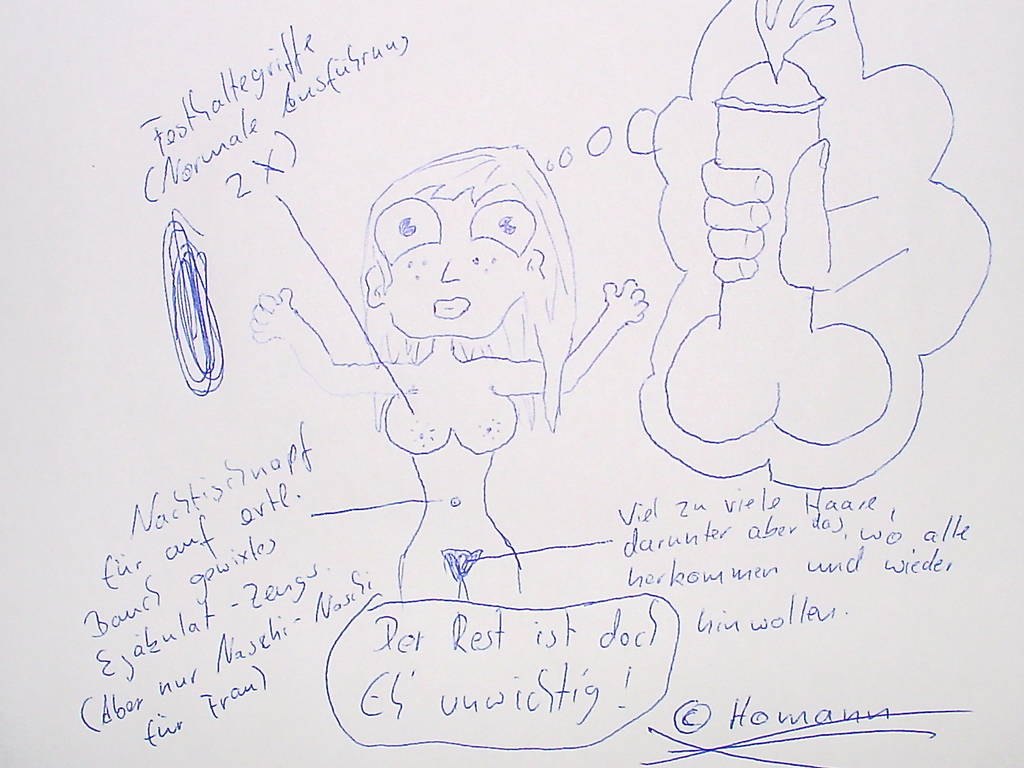 Festhaltegriffe
(Normale Ausführung
2 X)
Nachtischnapf
für auf
Bauch gewixtes
Ejakulat-Zeugs.
(Aber nur Naschi-Naschi
für Frau)
Viel zu viele Haare,
darunter aber das, wo alle
herkommen und wieder
hinwollen.
Der Rest ist doch
eh' unwichtig!
© Homann